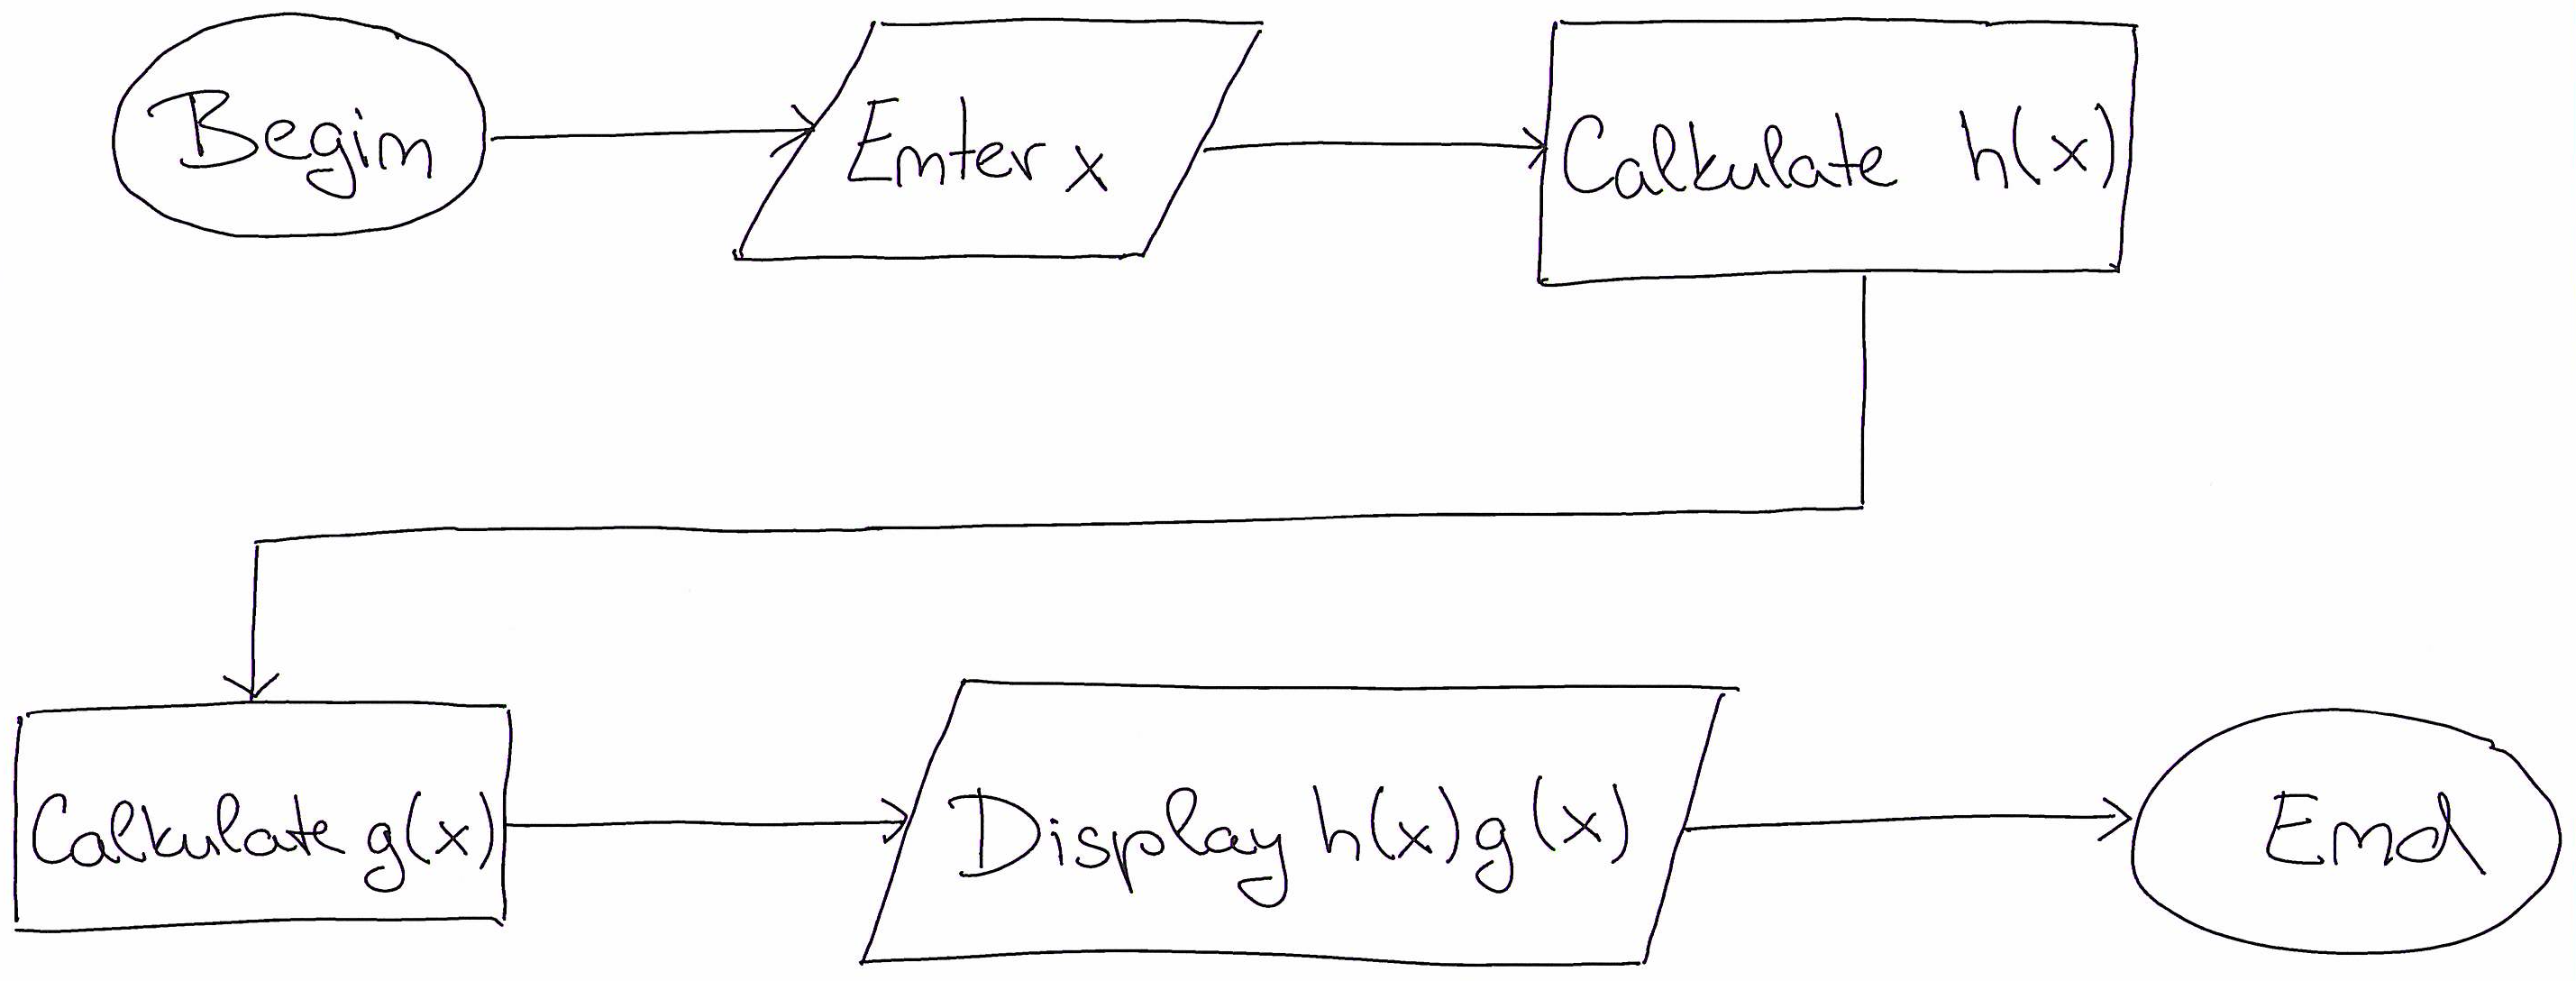 Begin
Enter x
Calkulate h(x)
Calkulate g(x)
Display h(x)g(x)
End